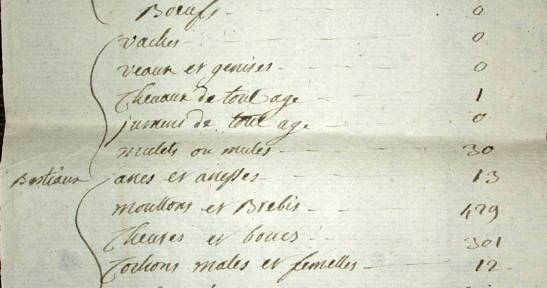 Boeufs 0
vaches 0
veaux et genises 0
Chevaux de tout age 1
jumens de tout age 0
mulets ou mules 30
Bestiaux anes et anesses 13
mouttons et Brebis 429
Chevres et boucs 301
Cochons males et femelles 12